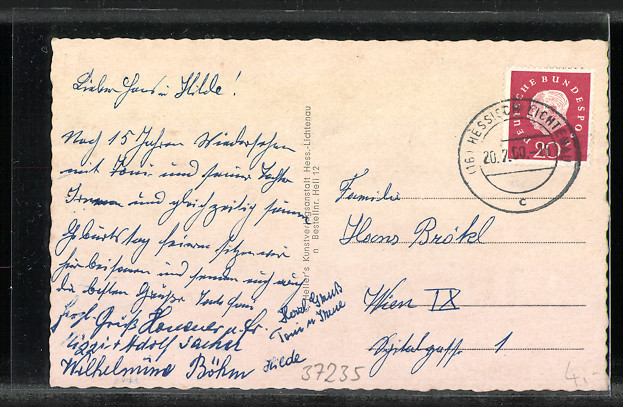 Lieber Hans u Hilde!
Nach 15 Jahren Wiedersehen
mit Toni und seiner Tochter
und gleichzeitig seinen
Geburtstag feiern sitzen wir
hier beisammen und senden auch
die besten Grüße
Herzl. Gruß
Adolf
Wilhelmine Böhm
Hilde
Herzl. Gruß
Toni u Irene
Keller's Kunstverlagsanstalt Hess.-Lichtenau
n Bestellnr. Heli 12
DEUTSCHE BUNDESPO
20
(16) HESSISCH LICHTENAU
20.7.60
c
Familie
Hans Brökl
Wien IX
Spitalgasse 1
37235
4,-